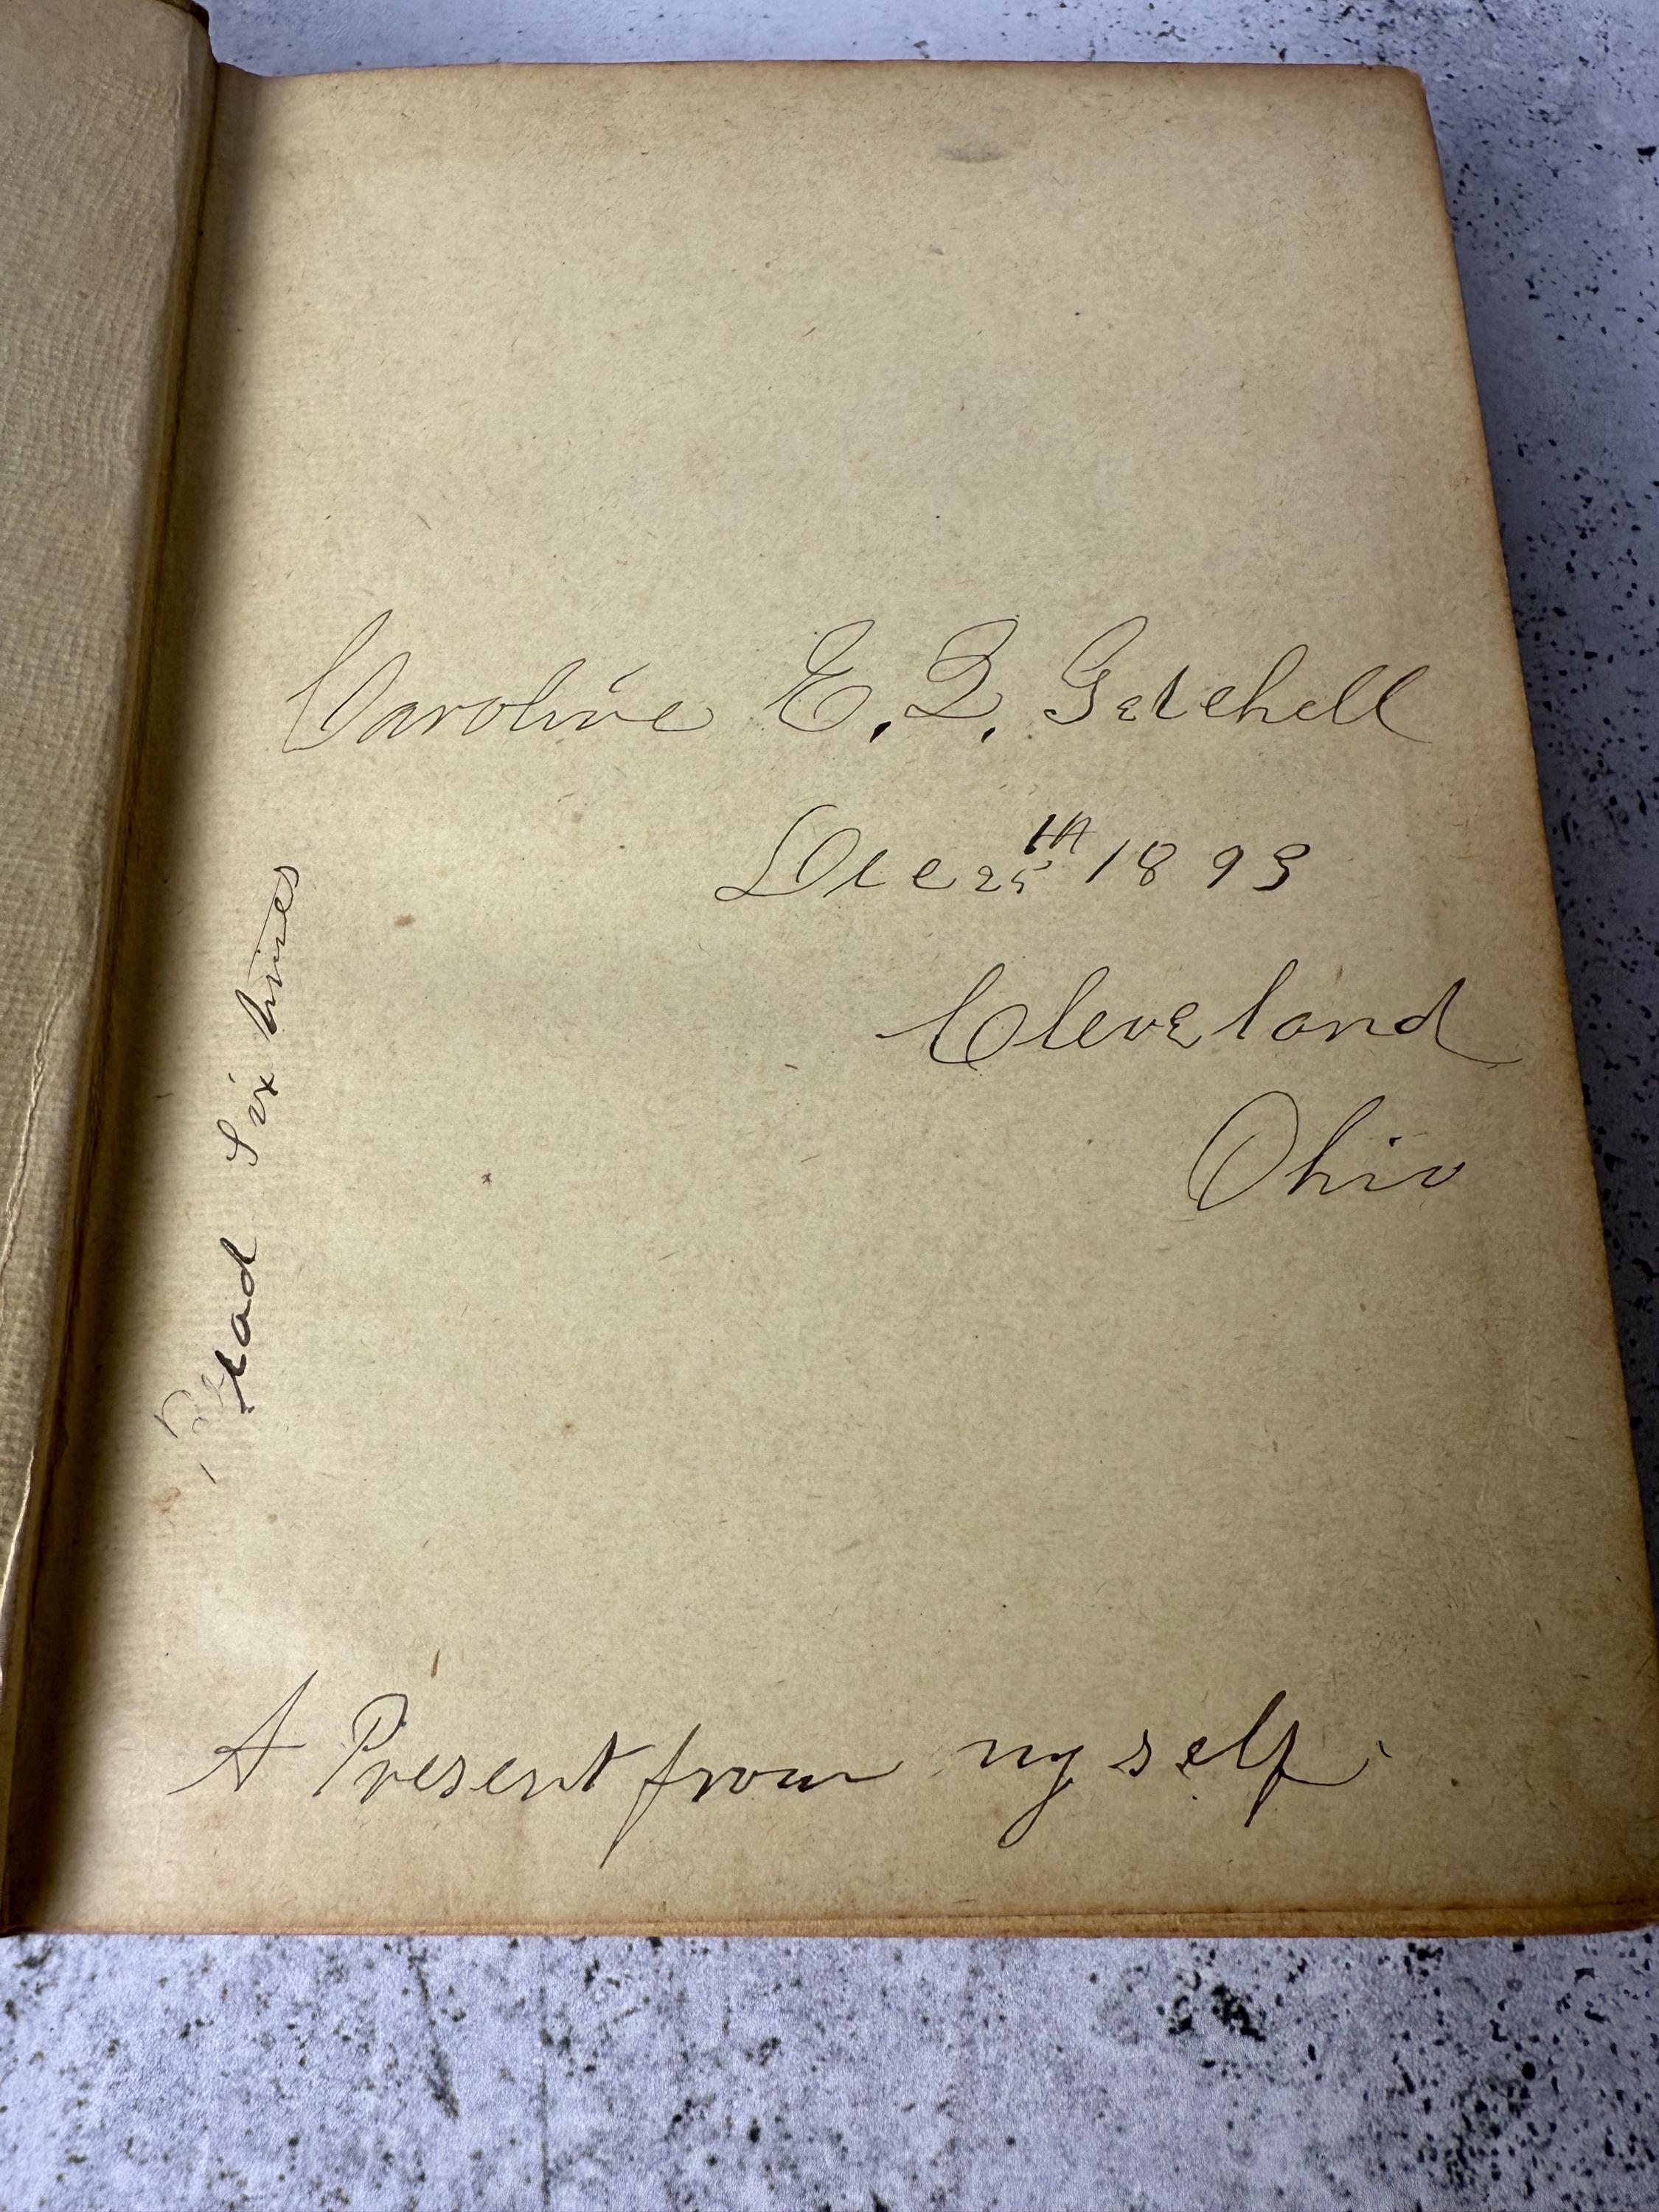 Caroline E. Q. Getchell
Dec 25th 1893
Cleveland
Ohio
Read Six times
A Present from myself.